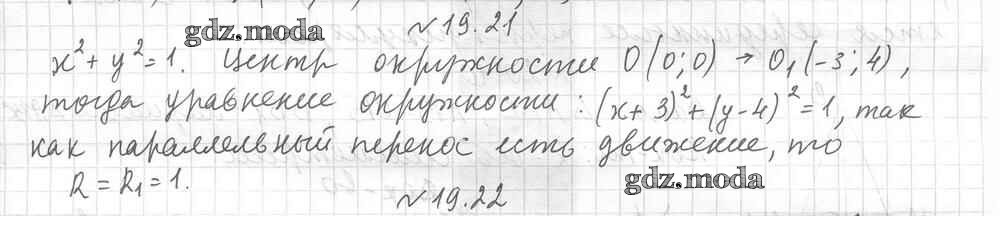 №19.21
gdz.moda
x²+y²=1. Центр окружности O(0;0) → O₁(-3;4),
тогда уравнение окружности: (x+3)²+(y-4)²=1, так
как параллельный перенос есть движение, то
R=R₁=1.
gdz.moda
№19.22